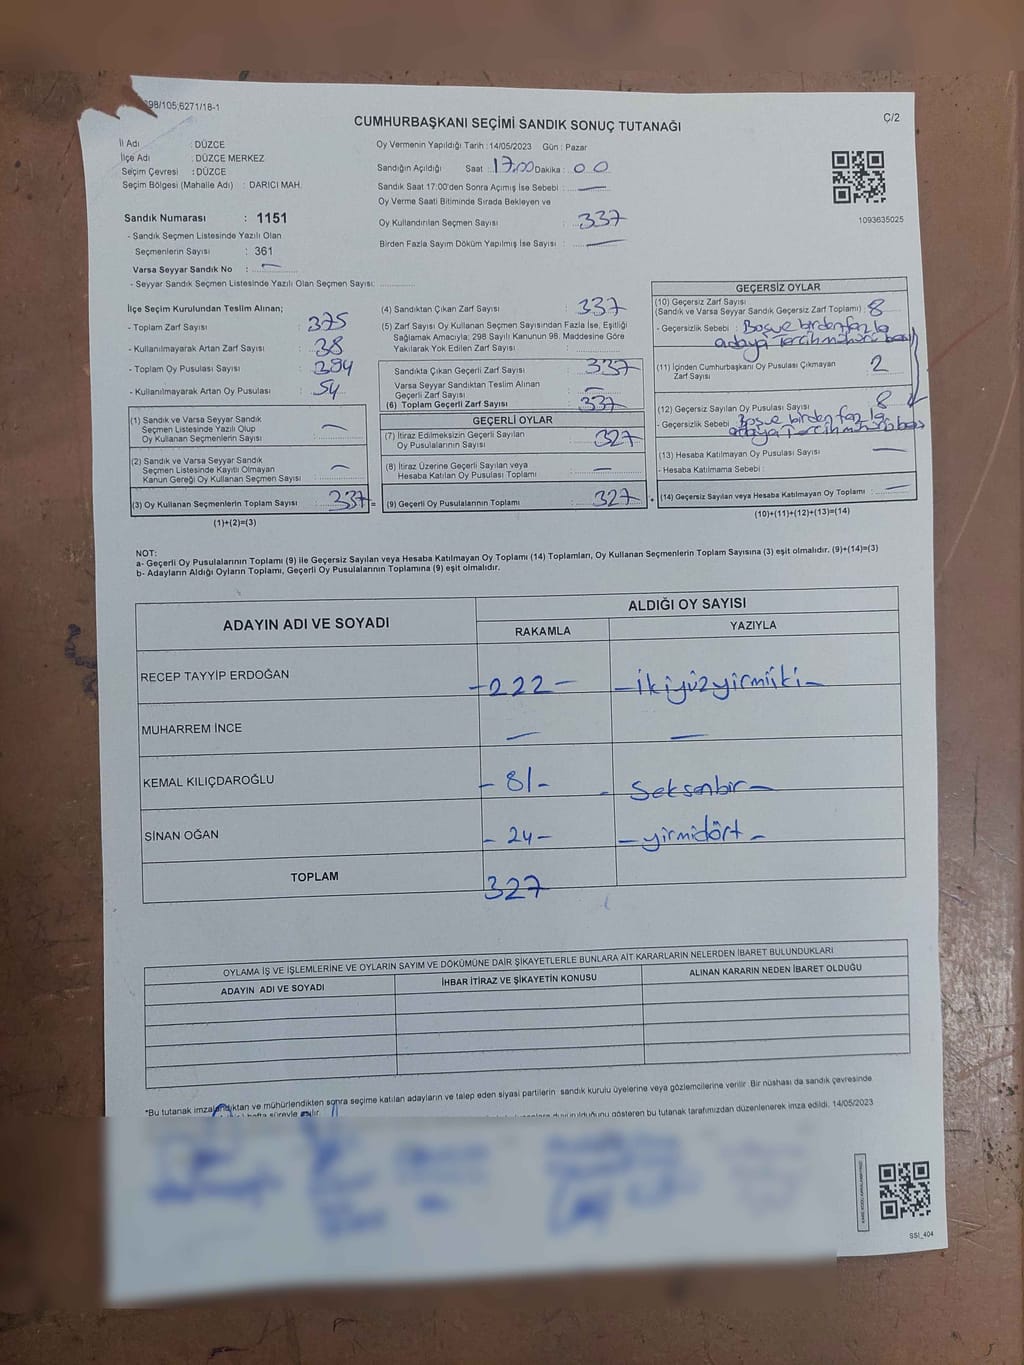 298/105;6271/18-1
CUMHURBAŞKANI SEÇİMİ SANDIK SONUÇ TUTANAĞI
Ç/2
İl Adı : DÜZCE
İlçe Adı : DÜZCE MERKEZ
Seçim Çevresi : DÜZCE
Seçim Bölgesi (Mahalle Adı) : DARICI MAH.
Sandık Numarası : 1151
- Sandık Seçmen Listesinde Yazılı Olan
Seçmenlerin Sayısı : 361
Varsa Seyyar Sandık No : —
- Seyyar Sandık Seçmen Listesinde Yazılı Olan Seçmen Sayısı:
Oy Vermenin Yapıldığı Tarih : 14/05/2023 Gün : Pazar
Sandığın Açıldığı Saat : 17.00 Dakika : 00
Sandık Saat 17:00'den Sonra Açılmış İse Sebebi : —
Oy Verme Saati Bitiminde Sırada Bekleyen ve
Oy Kullandırılan Seçmen Sayısı : 337
Birden Fazla Sayım Döküm Yapılmış İse Sayısı : —
1093635025
İlçe Seçim Kurulundan Teslim Alınan;
- Toplam Zarf Sayısı : 375
- Kullanılmayarak Artan Zarf Sayısı : 38
- Toplam Oy Pusulası Sayısı : 394
- Kullanılmayarak Artan Oy Pusulası : 54
(1) Sandık ve Varsa Seyyar Sandık
Seçmen Listesinde Yazılı Olup
Oy Kullanan Seçmenlerin Sayısı : —
(2) Sandık ve Varsa Seyyar Sandık
Seçmen Listesinde Kayıtlı Olmayan
Kanun Gereği Oy Kullanan Seçmen Sayısı : —
(3) Oy Kullanan Seçmenlerin Toplam Sayısı : 337 =
(1)+(2)=(3)
(4) Sandıktan Çıkan Zarf Sayısı : 337
(5) Zarf Sayısı Oy Kullanan Seçmen Sayısından Fazla İse, Eşitliği
Sağlamak Amacıyla; 298 Sayılı Kanunun 98. Maddesine Göre
Yakılarak Yok Edilen Zarf Sayısı :
Sandıkta Çıkan Geçerli Zarf Sayısı : 337
Varsa Seyyar Sandıktan Teslim Alınan
Geçerli Zarf Sayısı : —
(6) Toplam Geçerli Zarf Sayısı : 337
GEÇERLİ OYLAR
(7) İtiraz Edilmeksizin Geçerli Sayılan
Oy Pusulalarının Sayısı : 327
(8) İtiraz Üzerine Geçerli Sayılan veya
Hesaba Katılan Oy Pusulası Toplamı : —
(9) Geçerli Oy Pusulalarının Toplamı : 327
GEÇERSİZ OYLAR
(10) Geçersiz Zarf Sayısı
(Sandık ve Varsa Seyyar Sandık Geçersiz Zarf Toplamı) : 8
- Geçersizlik Sebebi : Boş ve birden fazla
adaya tercih mühürü
(11) İçinden Cumhurbaşkanı Oy Pusulası Çıkmayan
Zarf Sayısı : 2
(12) Geçersiz Sayılan Oy Pusulası Sayısı : 8
- Geçersizlik Sebebi : Boş ve birden fazla
adaya tercih mühürü
(13) Hesaba Katılmayan Oy Pusulası Sayısı : —
- Hesaba Katılmama Sebebi :
(14) Geçersiz Sayılan veya Hesaba Katılmayan Oy Toplamı : —
(10)+(11)+(12)+(13)=(14)
NOT:
a- Geçerli Oy Pusulalarının Toplamı (9) ile Geçersiz Sayılan veya Hesaba Katılmayan Oy Toplamı (14) Toplamları, Oy Kullanan Seçmenlerin Toplam Sayısına (3) eşit olmalıdır. (9)+(14)=(3)
b- Adayların Aldığı Oyların Toplamı, Geçerli Oy Pusulalarının Toplamına (9) eşit olmalıdır.
ADAYIN ADI VE SOYADI
ALDIĞI OY SAYISI
RAKAMLA YAZIYLA
RECEP TAYYİP ERDOĞAN -222- -ikiyüzyirmiiki-
MUHARREM İNCE — —
KEMAL KILIÇDAROĞLU - 81- - Seksenbir-
SİNAN OĞAN - 24- - yirmidört -
TOPLAM 327
OYLAMA İŞ VE İŞLEMLERİNE VE OYLARIN SAYIM VE DÖKÜMÜNE DAİR ŞİKAYETLERLE BUNLARA AİT KARARLARIN NELERDEN İBARET BULUNDUKLARI
ADAYIN ADI VE SOYADI İHBAR İTİRAZ VE ŞİKAYETİN KONUSU ALINAN KARARIN NEDEN İBARET OLDUĞU
*Bu tutanak imzalandıktan ve mühürlendikten sonra seçime katılan adayların ve talep eden siyasi partilerin sandık kurulu üyelerine veya gözlemcilerine verilir. Bir nüshası da sandık çevresinde
hafta süreyle gösteren bu tutanak tarafımızdan düzenlenerek imza edildi. 14/05/2023
SSI_404